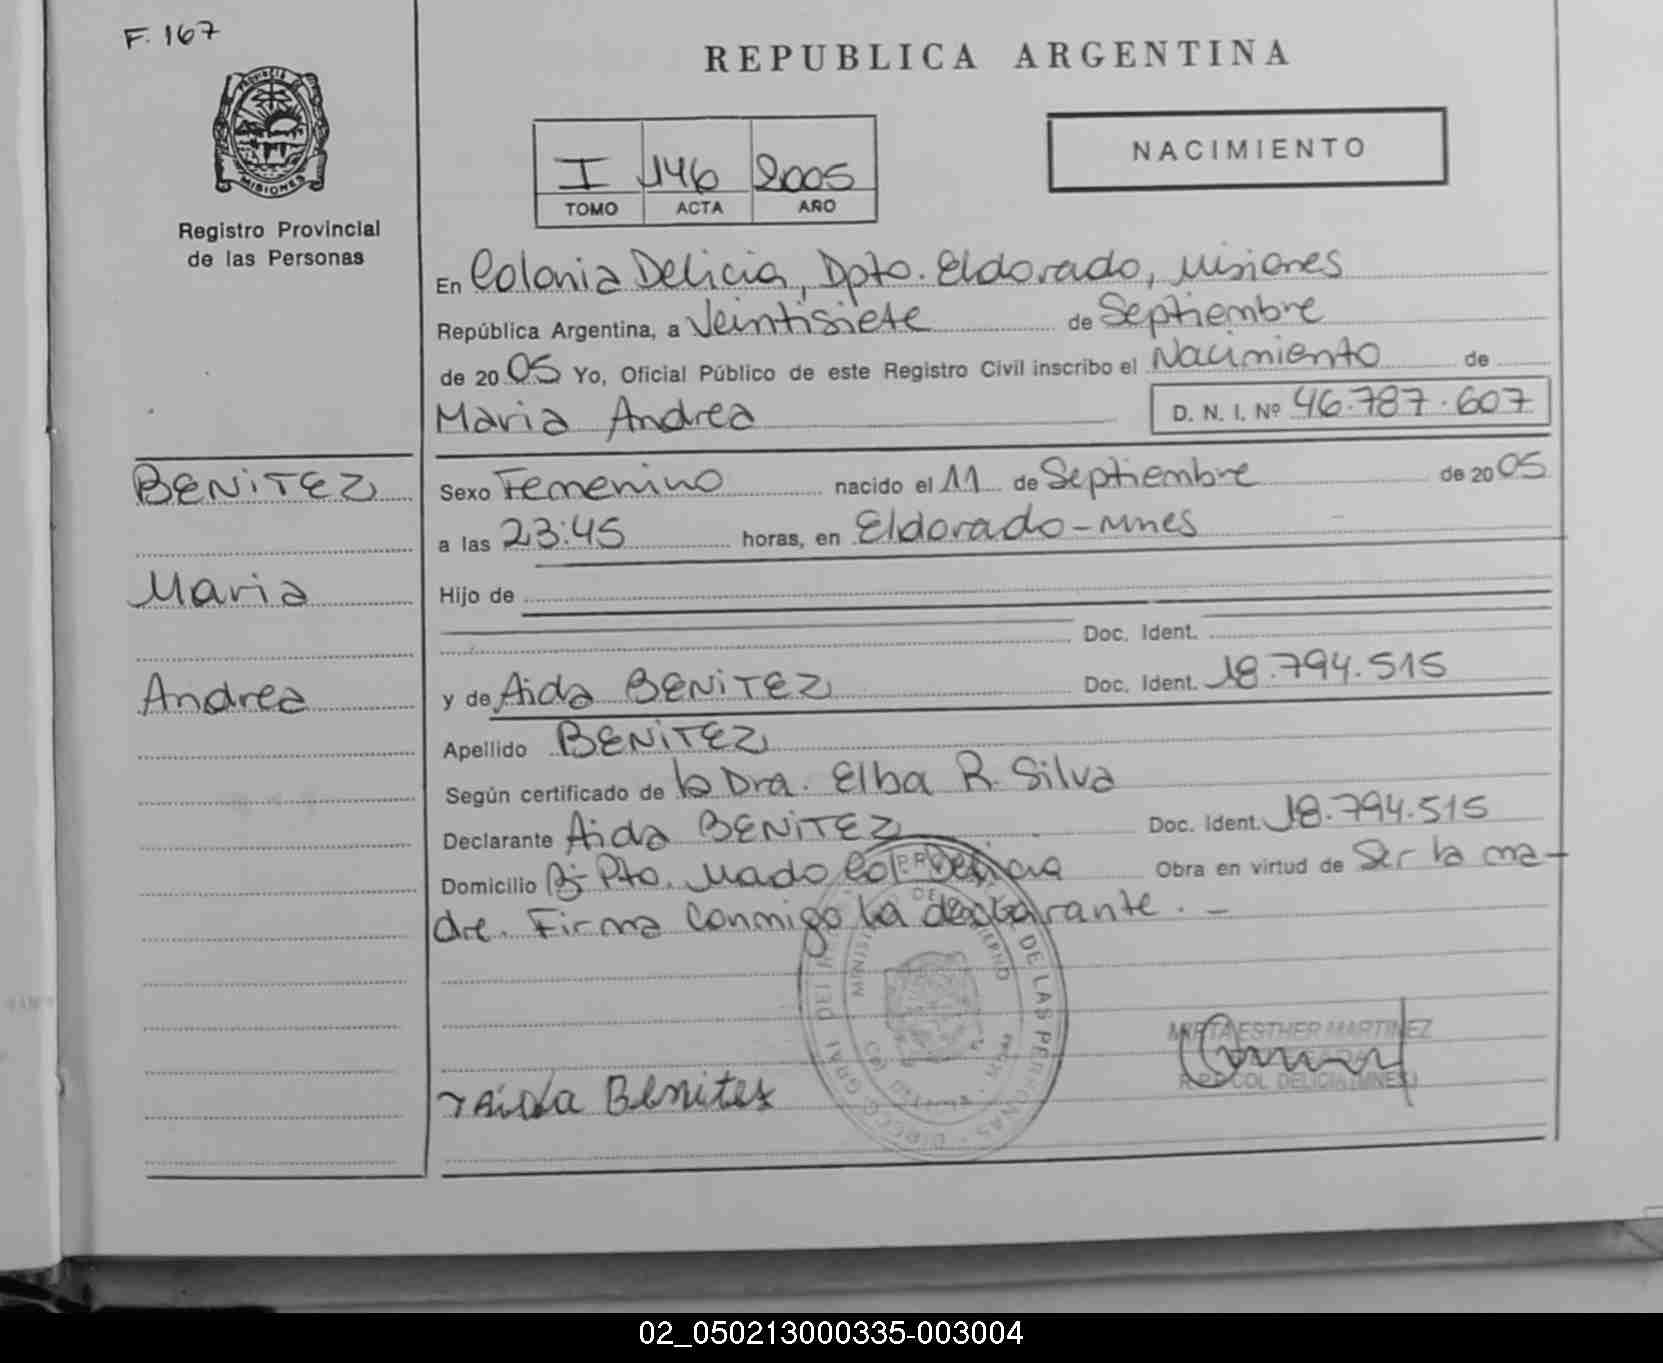 F. 167
PROVINCIA DE
MISIONES
Registro Provincial
de las Personas
REPUBLICA ARGENTINA
I 146 2005
TOMO ACTA AÑO
NACIMIENTO
En Colonia Delicia, Dpto. Eldorado, Misiones
República Argentina, a Veintisiete de Septiembre
de 2005 Yo, Oficial Público de este Registro Civil inscribo el Nacimiento de
Maria Andrea D. N. I. Nº 46.787.607
BENITEZ
Sexo Femenino nacido el 11 de Septiembre de 2005
a las 23:45 horas, en Eldorado-Mnes
Maria
Hijo de
Doc. Ident.
Andrea
y de Aida BENITEZ Doc. Ident. 18.794.515
Apellido BENITEZ
Según certificado de la Dra. Elba R. Silva
Declarante Aida BENITEZ Doc. Ident. 18.794.515
Domicilio Bº Pto. Mado Col. Delicia Obra en virtud de Ser la ma-
dre. Firma conmigo la declarante. -
DE LAS PERSONAS
MIRTA ESTHER MARTINEZ
COL DELICIA (MNES)
Aida Benites
02_050213000335-003004